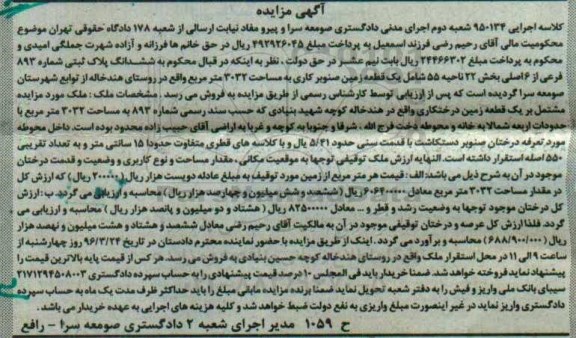 آگهی مزایده
کلاسه اجرایی ۹۵۰۱۳۴ شعبه دوم اجرای مدنی دادگستری صومعه سرا و پیرو مفاد نیابت ارسالی از شعبه ۱۷۸ دادگاه حقوقی تهران موضوع
محکومیت مالی آقای رحیم رضی فرزند اسمعیل به پرداخت مبلغ ۴۹۲۹۲۶۰۴۵ ریال در حق خانم ها فرزانه و آزاده شهرت جملگی امیدی و
محکوم به پرداخت مبلغ ۲۴۴۶۶۳۰۲ ریال بابت نیم عشر در حق دولت . نظر به اینکه در قبال محکوم به ششدانگ پلاک ثبتی شماره ۸۹۳
فرعی از ۶ اصلی بخش ۲۲ ناحیه ۵۵ شامل یک قطعه زمین صنوبر کاری به مساحت ۳۰۳۲ متر مربع واقع در روستای هندخاله از توابع شهرستان
صومعه سرا گردیده است که پس از ارزیابی توسط کارشناس رسمی از طریق مزایده به فروش می رسد . مشخصات ملک : ملک مورد مزایده
مشتمل بر یک قطعه زمین درختکاری واقع در هندخاله کوچه شهید بنیادی که حسب سند رسمی شماره ۸۹۳ به مساحت ۳۰۳۲ متر مربع با
حدودات اربعه شمالا به خانه و محوطه دخت فرج الله ، شرقا و جنوبا به کوچه و غربا به اراضی آقای حبیب زاده محدود بوده است. داخل محوطه
مورد تعرفه درختان صنوبر دستکاشت با قدمت سنی حدود ۵/۴۱ یال و با کلاسه های قطری متفاوت حدودا ۱۵ سانتی متر و به تعداد تقریبی
۵۵۰ اصله استقرار داشته است. النهایه ارزش ملک توقیفی توجها به موقعیت مکانی ، مقدار مساحت و نوع کاربری و وضعیت و قدمت درختان
موجود در آن به شرح ذیل می باشد: الف : قیمت هر متر مربع از زمین مورد توقیف به مبلغ عادله دویست هزار ریال (۲۰۰۰۰۰ ریال) که ارزش کل
در مقدار مساحت ۳۰۳۲ متر مربع معادل ۶۰۶۴۰۰۰۰۰ ریال (ششصد و شش میلیون و چهارصد هزار ریال) محاسبه و ارزیابی می گردد. ب : ارزش
کل درختان موجود توجها به وضعیت رشد و قطر و ... معادل ۸۲۵۰۰۰۰۰ ریال (هشتاد و دو میلیون و پانصد هزار ریال) محاسبه و ارزیابی می
گردد. فلذا ارزش کل عرصه و درختان توقیفی موجود در آن به مالکیت آقای رحیم رضی معادل ششصد و هشتاد و هشت میلیون و نهصد هزار
ریال (۶۸۸/۹۰۰/۰۰۰) محاسبه و برآورد می گردد. اینک از طریق مزایده با حضور نماینده محترم دادستان در تاریخ ۹۶/۳/۲۴ روز چهارشنبه از
ساعت ۹ الی ۱۱ در محل استقرار ملک واقع در روستای هندخاله کوچه حسین بنیادی به فروش می رسد. هر کس از قیمت پایه بالاترین قیمت را
پیشنهاد نماید فروخته خواهد شد. ضمنا خریدار باید فی المجلس ۱۰ درصد قیمت پیشنهادی را به حساب سپرده دادگستری ۲۱۷۱۲۹۴۵۰۸۰۰۳
سیبای بانک ملی واریز و فیش را به دفتر شعبه تحویل نماید ضمنا برنده مزایده مابقی مبلغ را باید حداکثر ظرف مدت یک ماه به حساب سپرده
دادگستری واریز نماید در غیر اینصورت مبلغ واریزی به نفع دولت ضبط خواهد شد و کلیه هزینه های اجرایی به عهده خریدار می باشد .
ح ۱۰۵۹ مدیر اجرای شعبه ۲ دادگستری صومعه سرا - رافع